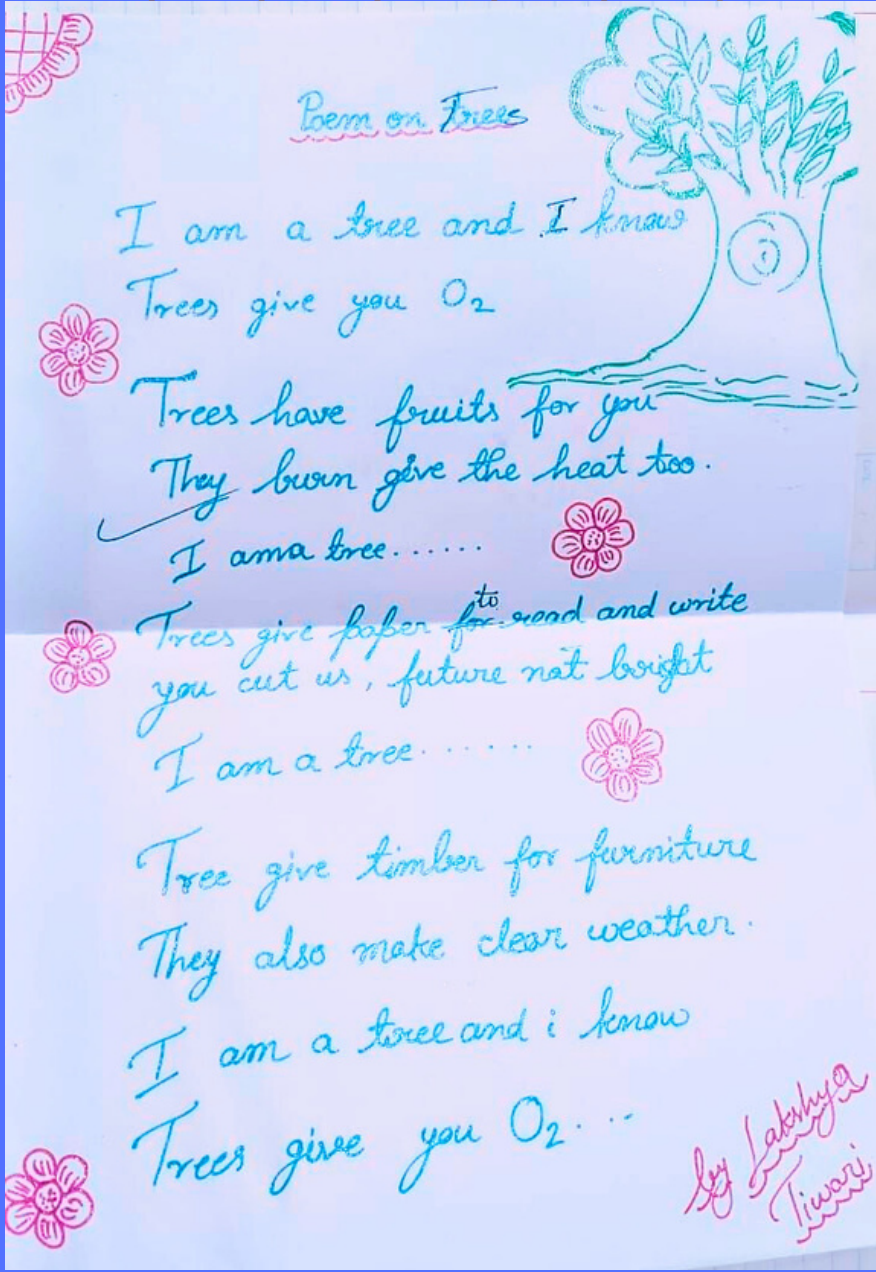 Poem on Trees
I am a tree and I know
Trees give you O₂
Trees have fruits for you
They burn give the heat too.
I ama tree......
Trees give paper to read and write
you cut us, future not bright
I am a tree.......
Tree give timber for furniture
They also make clear weather.
I am a tree and i know
Trees give you O₂...
by Lakshya
Tiwari